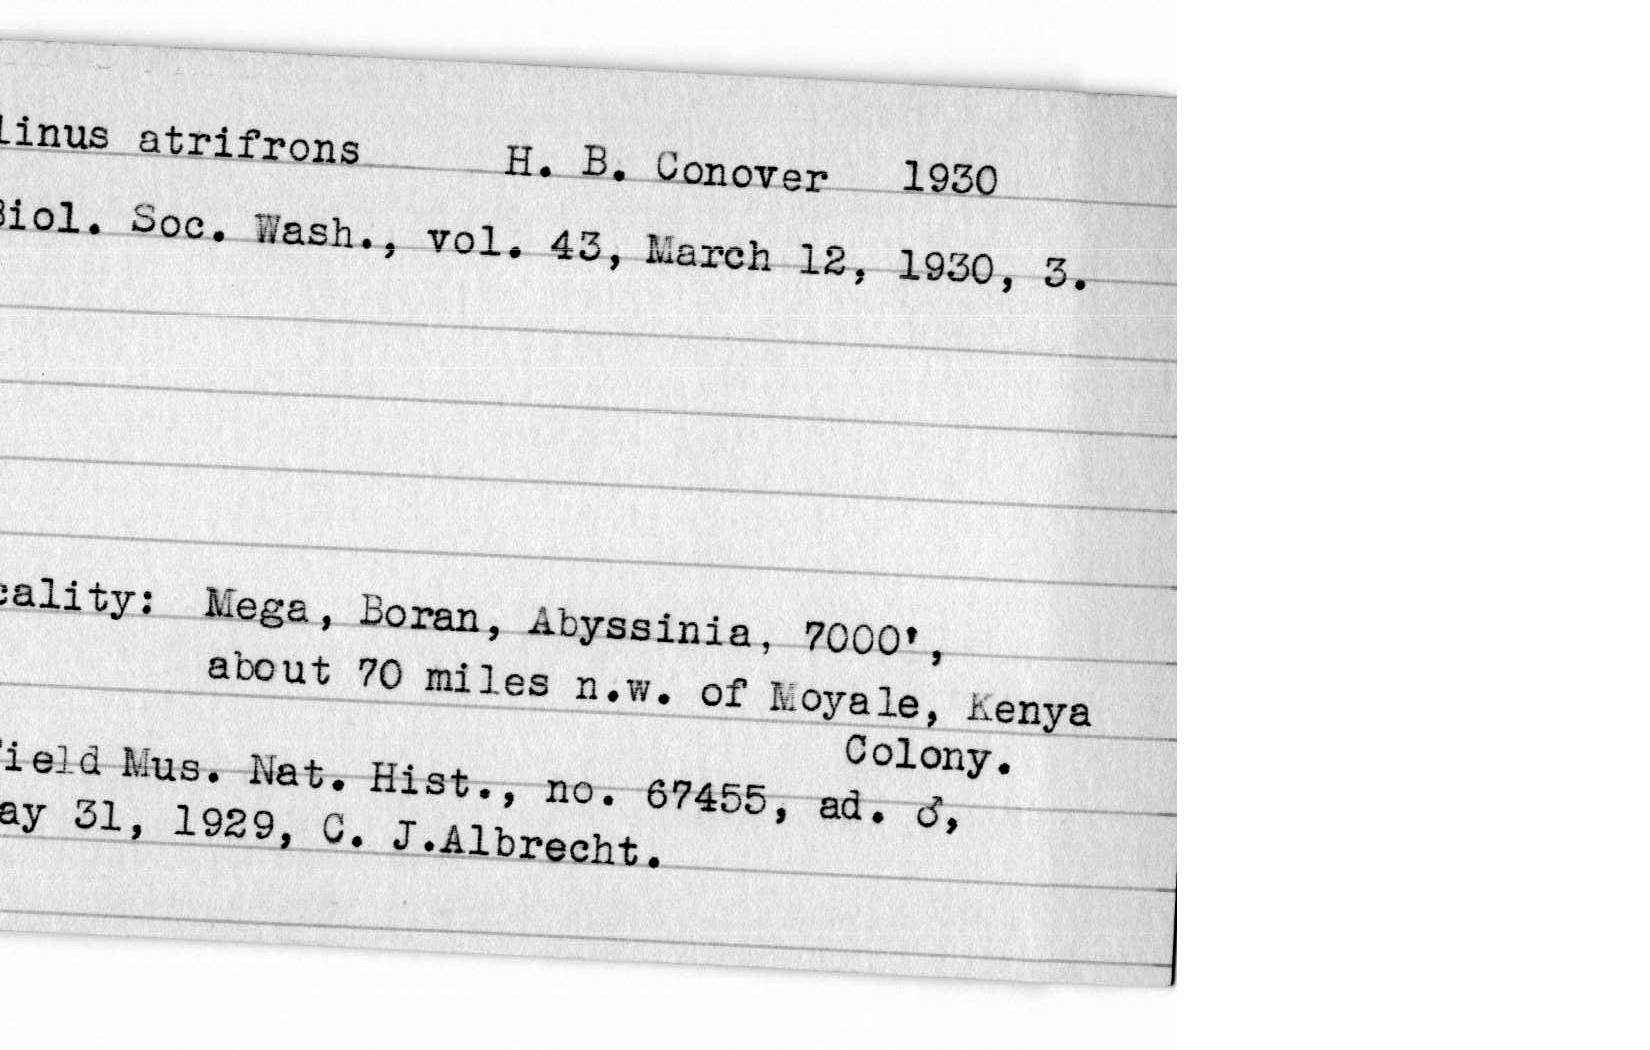 linus atrifrons H. B. Conover 1930
Biol. Soc. Wash., vol. 43, March 12, 1930, 3.
cality: Mega, Boran, Abyssinia, 7000',
about 70 miles n.w. of Moyale, Kenya
Colony.
Field Mus. Nat. Hist., no. 67455, ad. ♂,
ay 31, 1929, C. J.Albrecht.